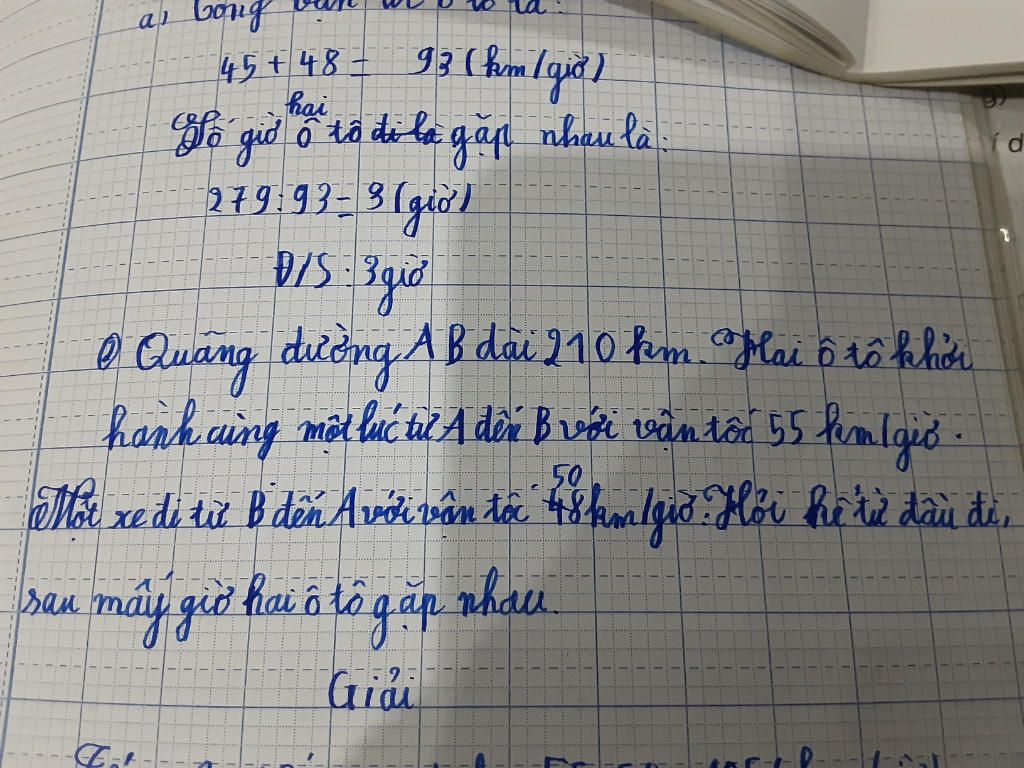 a) Tổng vận tốc ô tô là:
45 + 48 = 93 (km/giờ)
Số giờ hai ô tô gặp nhau là:
279 : 93 = 3 (giờ)
Đ/S : 3 giờ
② Quãng đường A B dài 210 km. Hai ô tô khởi
hành cùng một lúc từ A đến B với vận tốc 55 km/giờ.
Một xe đi từ B đến A với vân tốc 50 km/giờ. Hỏi kể từ đầu đi,
sau mấy giờ hai ô tô gặp nhau.
Giải